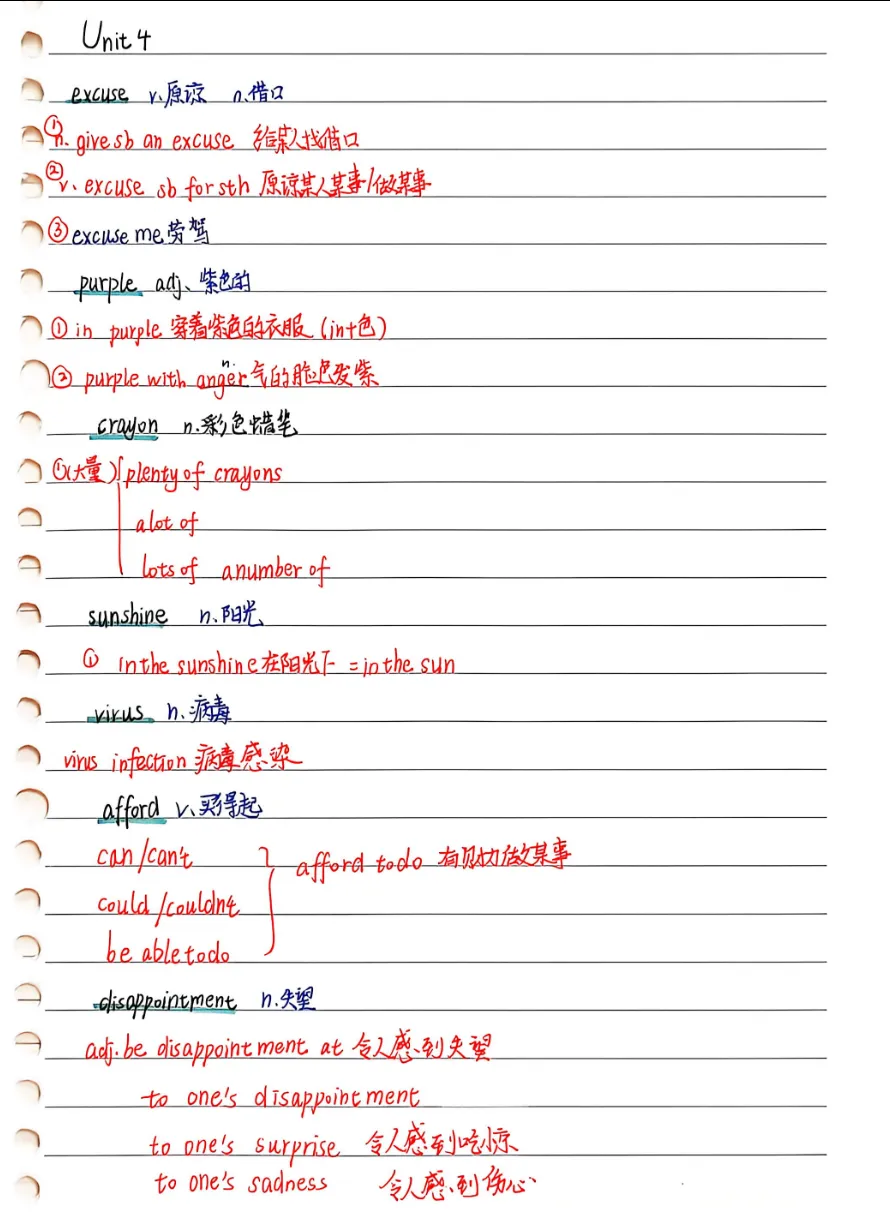 Unit 4
excuse v.原谅 n.借口
①n. give sb an excuse 给某人找借口
②v. excuse sb for sth 原谅某人某事/做某事
③excuse me 劳驾
purple adj. 紫色的
① in purple 穿着紫色的衣服 (in+色)
② purple with anger n. 气的脸色发紫
crayon n.彩色蜡笔
①(大量) plenty of crayons
a lot of
lots of a number of
sunshine n.阳光
① In the sunshine 在阳光下 = in the sun
virus n.病毒
virus infection 病毒感染
afford v.买得起
can/can't afford to do 有财力做某事
could/couldn't
be able to do
disappointment n.失望
adj. be disappointment at 令人感到失望
to one's disappointment
to one's surprise 令人感到吃惊
to one's sadness 令人感到伤心